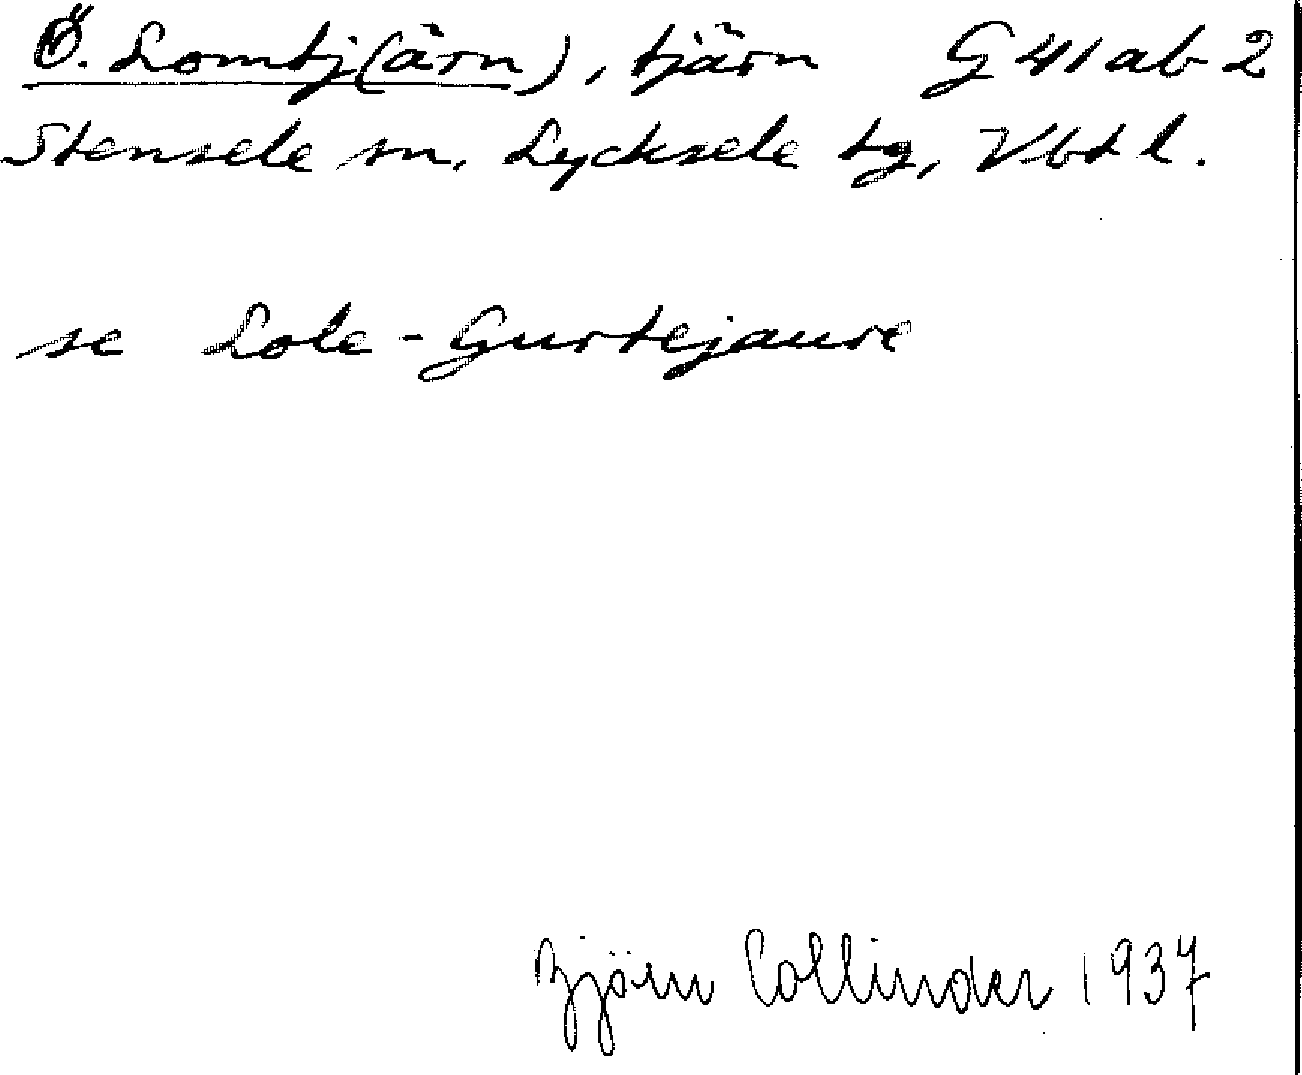 Ö. Lomtj(ärn), tjärn G 41 ab 2
Stensele sn, Lycksele tg, Vbt l.
se Lole-Gurtejaure
Björn Collinder 1937